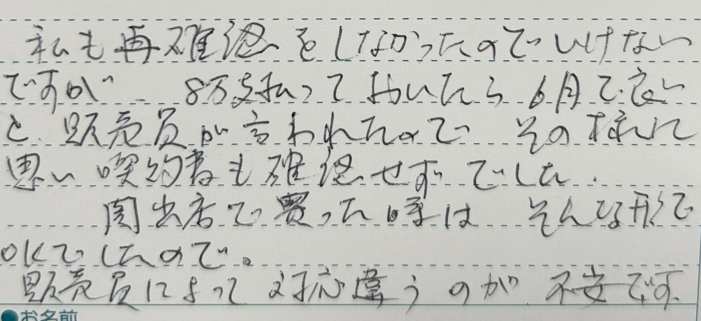 私も再確認をしなかったのでいけない
ですが 8万支払っておいたら6月で良い
と 販売員が言われたので その様に
思い 喫約書も確認せずでした.
岡出店で買った時は そんな形で
OKでしたので。
販売員によって対応違うのが 不安です.
●お名前